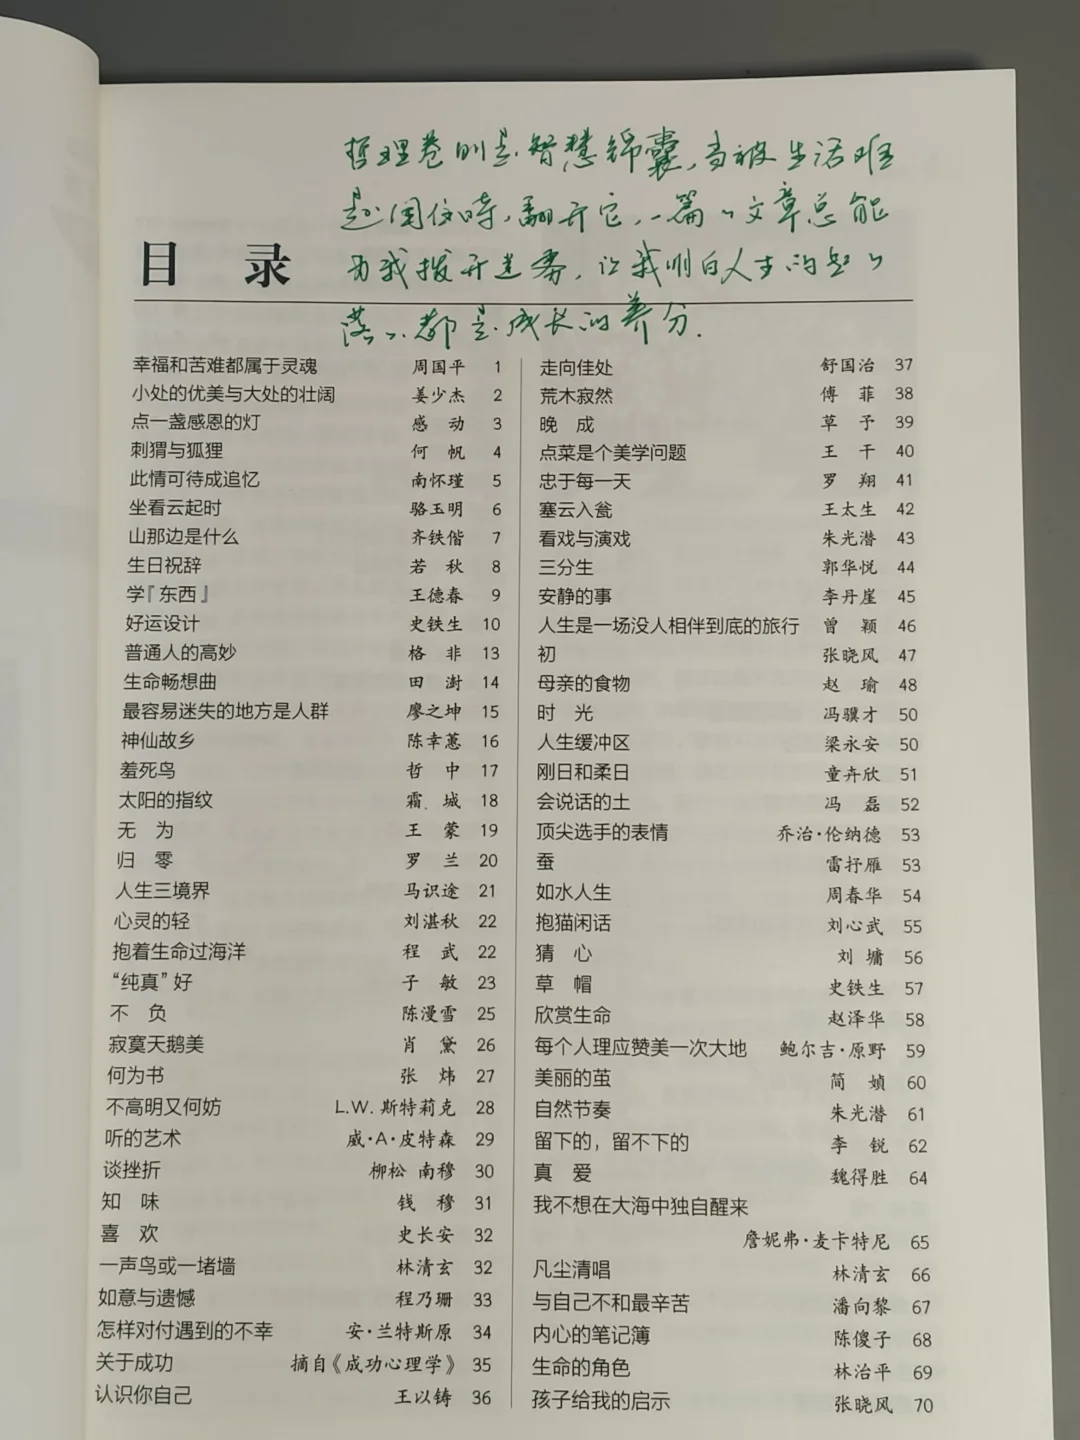 哲理卷则是智慧锦囊，当被生活难
题困住时，翻开它，一篇篇文章总能
为我拨开迷雾，让我明白人生的起起
落落都是成长的养分.
目 录
幸福和苦难都属于灵魂 周国平 1
小处的优美与大处的壮阔 姜少杰 2
点一盏感恩的灯 感 动 3
刺猬与狐狸 何 帆 4
此情可待成追忆 南怀瑾 5
坐看云起时 骆玉明 6
山那边是什么 齐铁偕 7
生日祝辞 若 秋 8
学『东西』 王德春 9
好运设计 史铁生 10
普通人的高妙 格 非 13
生命畅想曲 田 澍 14
最容易迷失的地方是人群 廖之坤 15
神仙故乡 陈幸蕙 16
羞死鸟 哲 中 17
太阳的指纹 霜 城 18
无 为 王 蒙 19
归 零 罗 兰 20
人生三境界 马识途 21
心灵的轻 刘湛秋 22
抱着生命过海洋 程 武 22
“纯真”好 子 敏 23
不 负 陈漫雪 25
寂寞天鹅美 肖 黛 26
何为书 张 炜 27
不高明又何妨 L.W. 斯特莉克 28
听的艺术 威·A·皮特森 29
谈挫折 柳松 南穆 30
知 味 钱 穆 31
喜 欢 史长安 32
一声鸟或一堵墙 林清玄 32
如意与遗憾 程乃珊 33
怎样对付遇到的不幸 安·兰特斯原 34
关于成功 摘自《成功心理学》 35
认识你自己 王以铸 36
走向佳处 舒国治 37
荒木寂然 傅 菲 38
晚 成 草 予 39
点菜是个美学问题 王 干 40
忠于每一天 罗 翔 41
塞云入瓮 王太生 42
看戏与演戏 朱光潜 43
三分生 郭华悦 44
安静的事 李丹崖 45
人生是一场没人相伴到底的旅行 曾 颖 46
初 张晓风 47
母亲的食物 赵 瑜 48
时 光 冯骥才 50
人生缓冲区 梁永安 50
刚日和柔日 童卉欣 51
会说话的土 冯 磊 52
顶尖选手的表情 乔治·伦纳德 53
蚕 雷抒雁 53
如水人生 周春华 54
抱猫闲话 刘心武 55
猜 心 刘 墉 56
草 帽 史铁生 57
欣赏生命 赵泽华 58
每个人理应赞美一次大地 鲍尔吉·原野 59
美丽的茧 简 媜 60
自然节奏 朱光潜 61
留下的，留不下的 李 锐 62
真 爱 魏得胜 64
我不想在大海中独自醒来
詹妮弗·麦卡特尼 65
凡尘清唱 林清玄 66
与自己不和最辛苦 潘向黎 67
内心的笔记簿 陈傻子 68
生命的角色 林治平 69
孩子给我的启示 张晓风 70